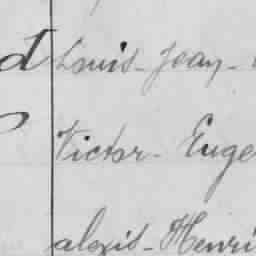 Louis - Jean -
Victor - Euge
alexis - Henri